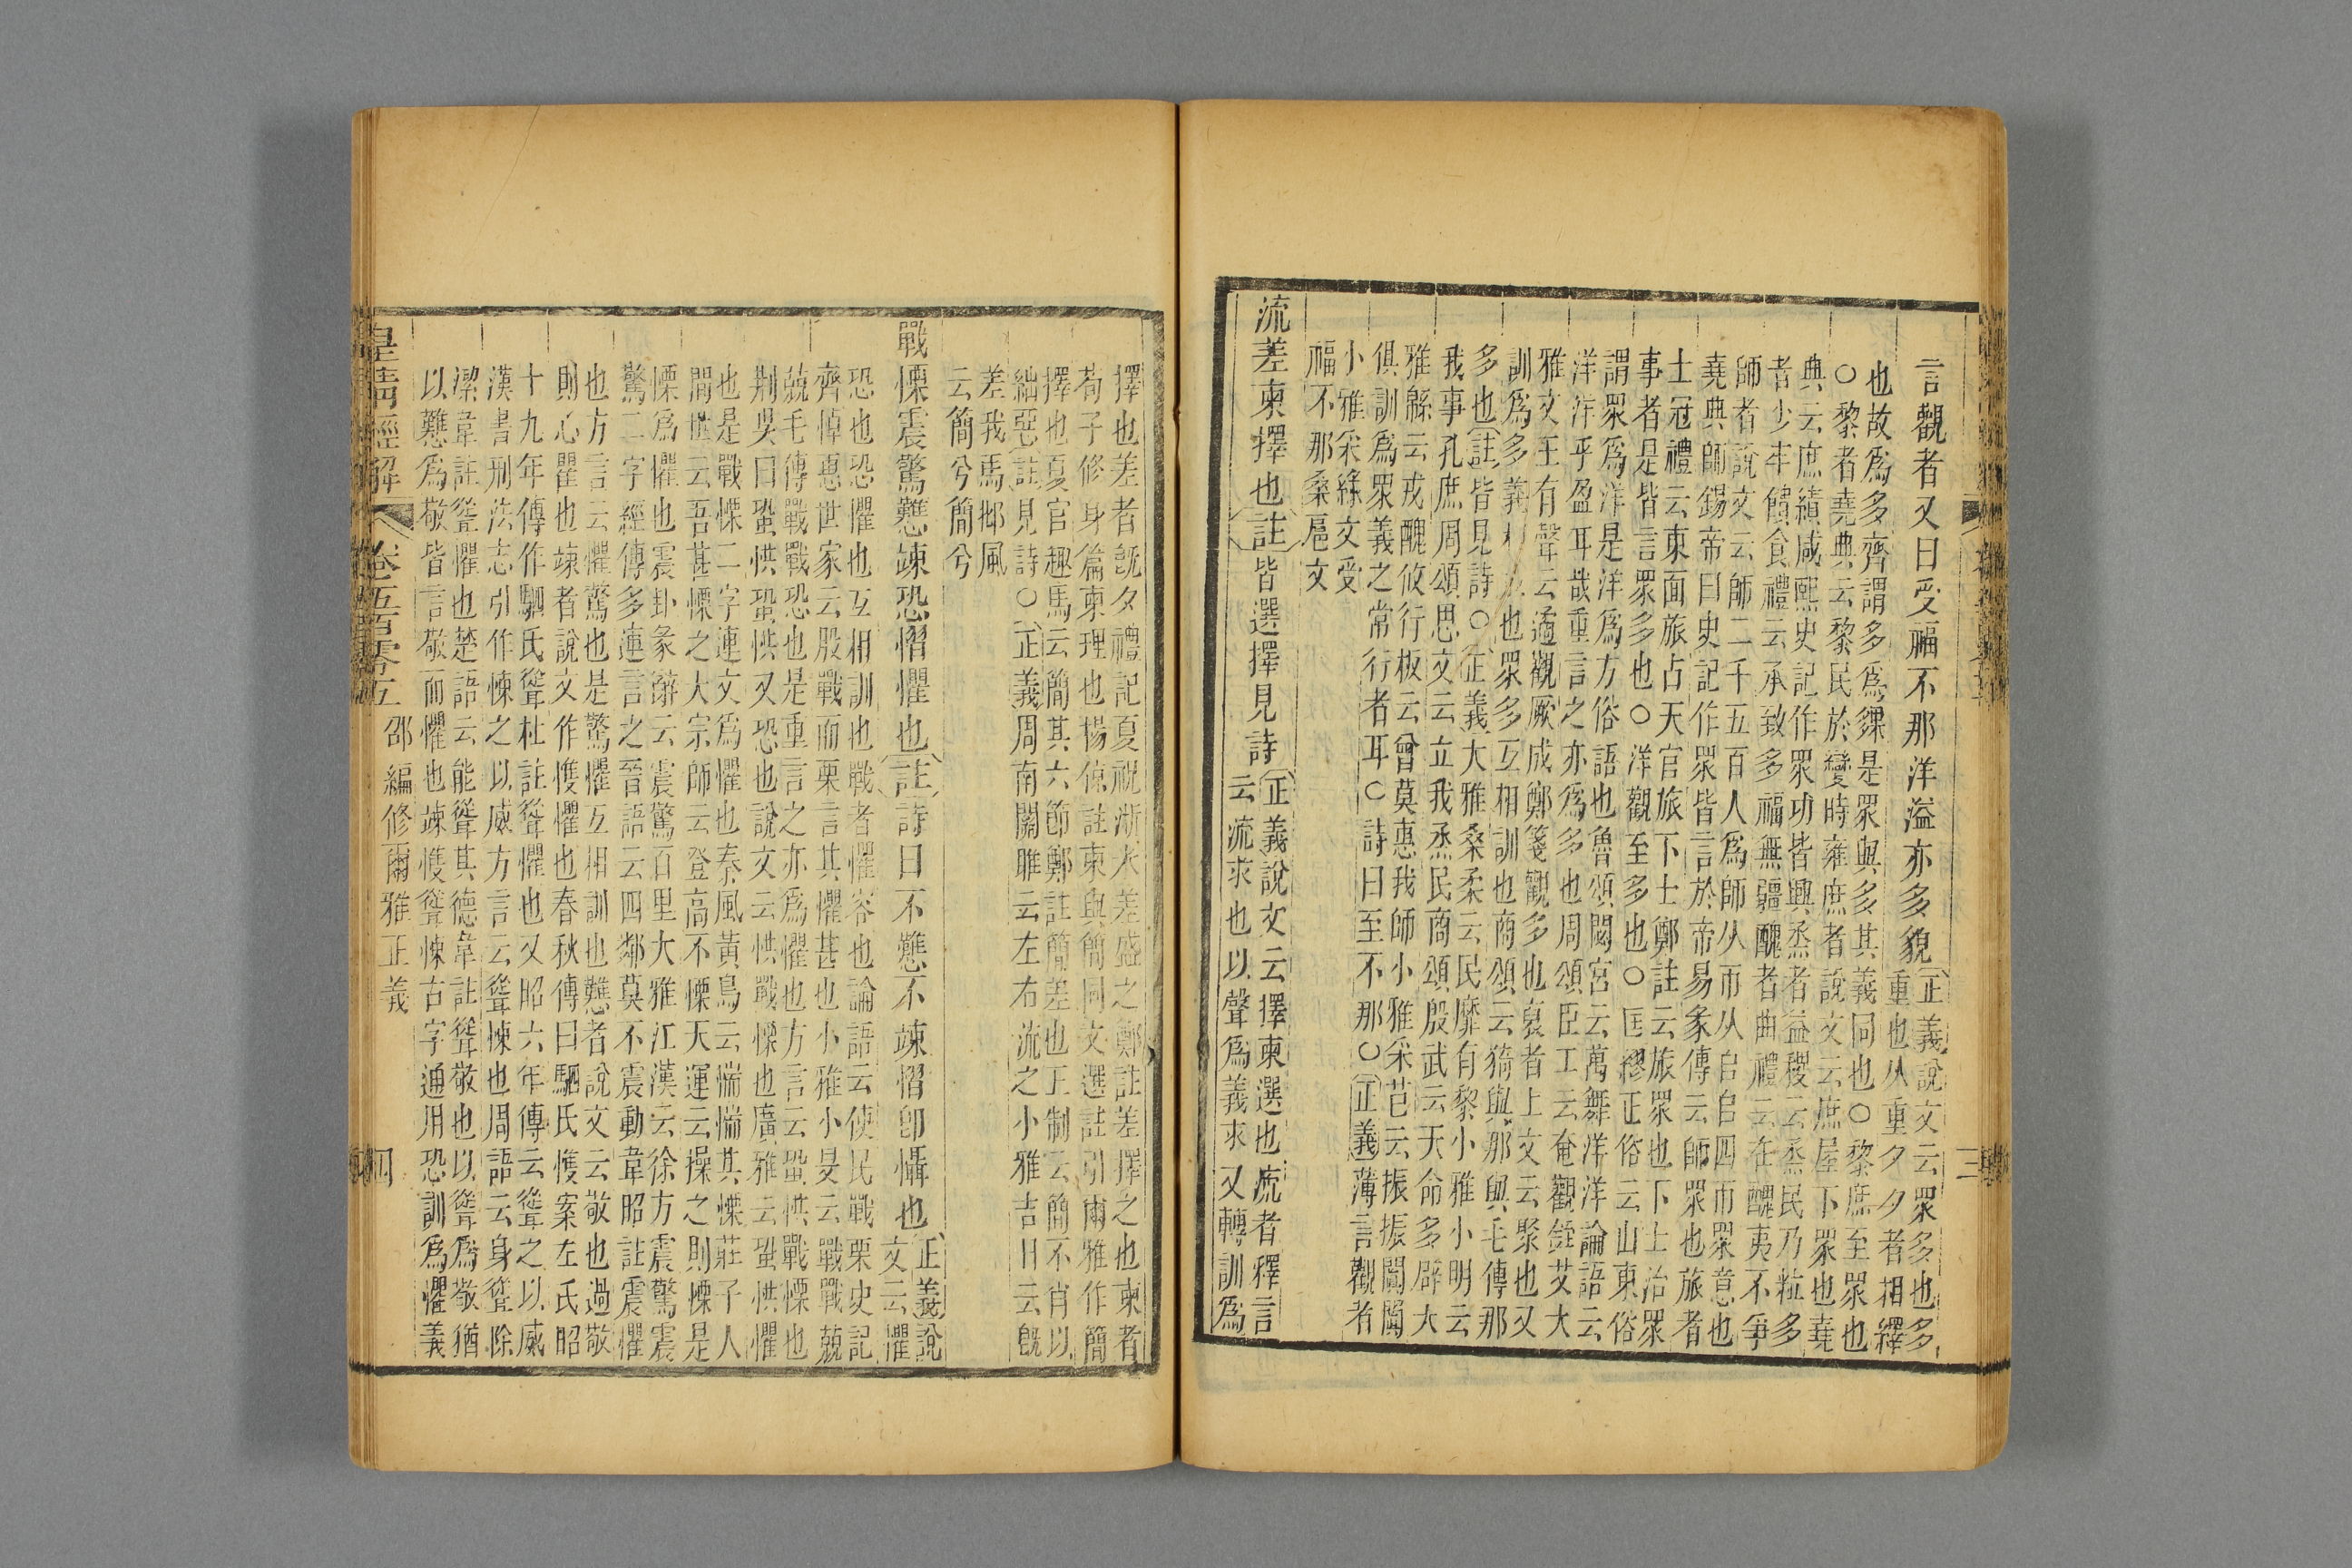 言觀者又曰受福不那洋溢亦多貌
正義說文云眾多也多
重也从重夕夕者相繹
也故爲多齊謂多爲夥是眾與多其義同也○黎庶至眾也
○黎者堯典云黎民於變時雍庶者說文云庶屋下眾也堯
典云庶績咸熙史記作眾功皆興烝者益稷云烝民乃粒多
者少牢饋食禮云承致多福無疆醜者曲禮云在醜夷不爭
師者說文云師二千五百人爲師从帀从𠂤𠂤四帀眾意也
堯典師錫帝曰史記作眾皆言於帝易彖傳云師眾也旅者
士冠禮云東面旅占天官旅下士鄭註云旅眾也下士治眾
事者是皆言眾多也○洋觀至多也○匡繆正俗云山東俗
謂眾爲洋是洋爲方俗語也魯頌閟宮云萬舞洋洋論語云
洋洋乎盈耳哉重言之亦爲多也周頌臣工云奄觀銍艾大
雅文王有聲云遹觀厥成鄭箋觀多也裒者上文云聚也又
訓爲多義也眾多互相訓也商頌云猗與那與毛傳那
多也註皆見詩○正義大雅桑柔云民靡有黎小雅小明云
我事孔庶周頌思文云立我烝民商頌殷武云天命多辟大
雅緜云戎醜攸行板云曾莫惠我師小雅采芑云振振闐闐
俱訓爲眾義之常行者耳○詩曰至不那○正義薄言觀者
小雅采綠文受
福不那桑扈文
流差柬擇也註皆選擇見詩
正義說文云擇柬選也流者釋言
云流求也以聲爲義求又轉訓爲
擇也差者既夕禮記夏祝淅米差盛之鄭註差擇之也柬者
荀子修身篇柬理也楊倞註柬與簡同文選註引爾雅作簡
擇也夏官趣馬云簡其六節鄭註簡差也王制云簡不肖以
絀惡註見詩○正義周南關雎云左右流之小雅吉日云既
差我馬邶風
云簡兮簡兮
戰慄震驚戁竦恐慴懼也註詩曰不戁不竦慴卽懾也
正義說
文云懼
恐也恐懼也互相訓也戰者懼容也論語云使民戰栗史記
齊悼惠世家云股戰而栗言其懼甚也小雅小旻云戰戰兢
兢毛傳戰戰恐也是重言之亦爲懼也方言云蛩㤨戰慄也
荆吳曰蛩㤨蛩㤨又恐也說文云㤨戰慄也廣雅云蛩㤨懼
也是戰慄二字連文爲懼也秦風黃鳥云惴惴其慄莊子人
間世云吾甚慄之大宗師云登高不慄天運云操之則慄是
慄爲懼也震卦彖辭云震驚百里大雅江漢云徐方震驚震
驚二字經傳多連言之晉語云四鄰莫不震動韋昭註震懼
也方言云懼驚也是驚懼互相訓也戁者說文云敬也過敬
則心瞿也竦者說文作愯懼也春秋傳曰駟氏愯案左氏昭
十九年傳作駟氏聳杜註聳懼也又昭六年傳云聳之以威
漢書刑法志引作㥦之以威方言云聳悚也周語云身聳除
潔韋註聳懼也楚語云能聳其德韋註聳敬也以聳爲敬猶
以戁爲敬皆言敬而懼也竦愯聳悚古字通用恐訓爲懼義
皇清經解 卷五百零五 邵編修爾雅正義 四